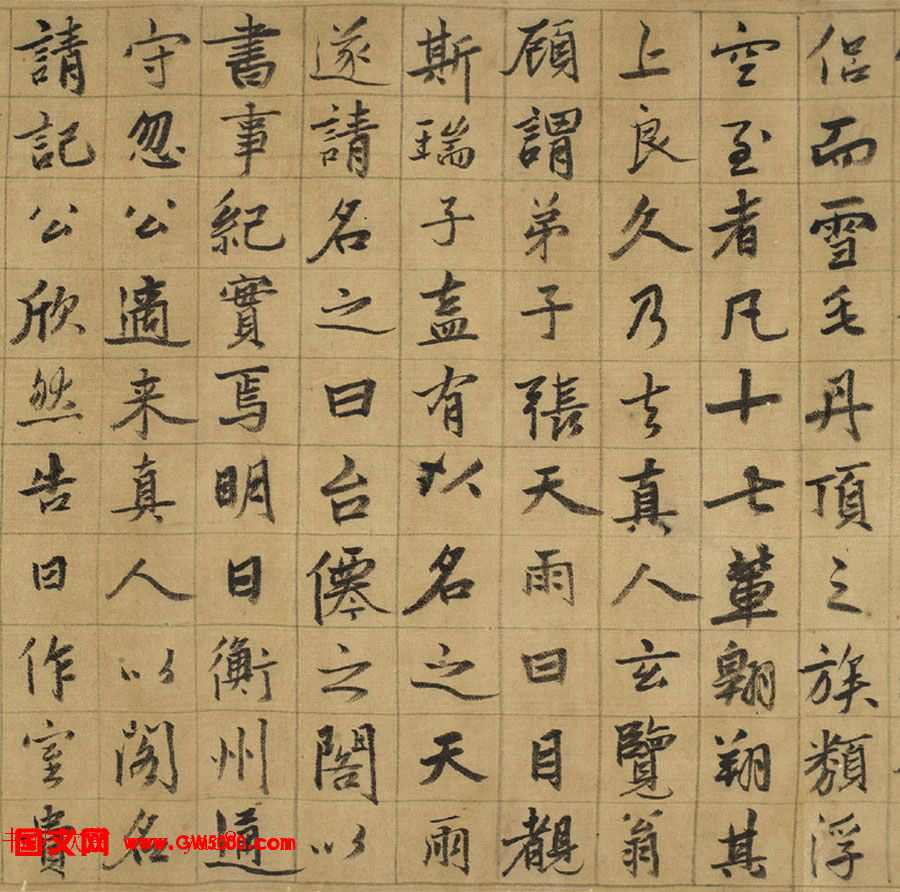 侣而雪毛丹頂之族類浮
空至者凡十七輩翱翔其
上良久乃去真人玄覽翁
顧謂弟子張天雨曰目覩
斯瑞子盍有以名之天雨
遂請名之曰台僊之閣以
書事紀實焉明日衡州道
守忽公適来真人以閣名
請記公欣然告曰作室貴
国文网 www.GW5000.com